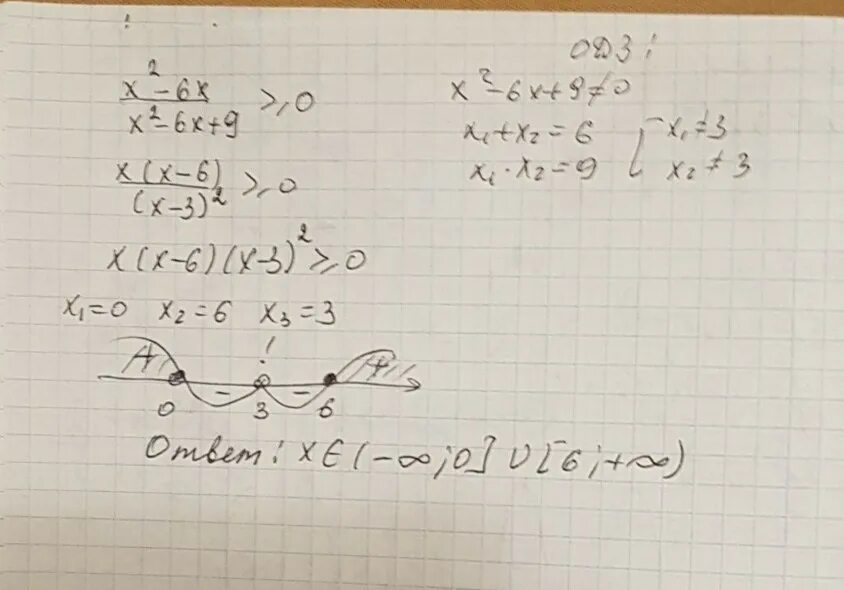 x² - 6x / x² - 6x + 9 ≥ 0
x(x-6) / (x-3)² ≥ 0
x(x-6)(x-3)² ≥ 0
x₁=0 x₂=6 x₃=3
+ - ! - +
0 3 6
Ответ: x∈(-∞;0]∪[6;+∞)
ОДЗ:
x² - 6x + 9 ≠ 0
x₁+x₂=6 [ x₁≠3
x₁·x₂=9 x₂≠3